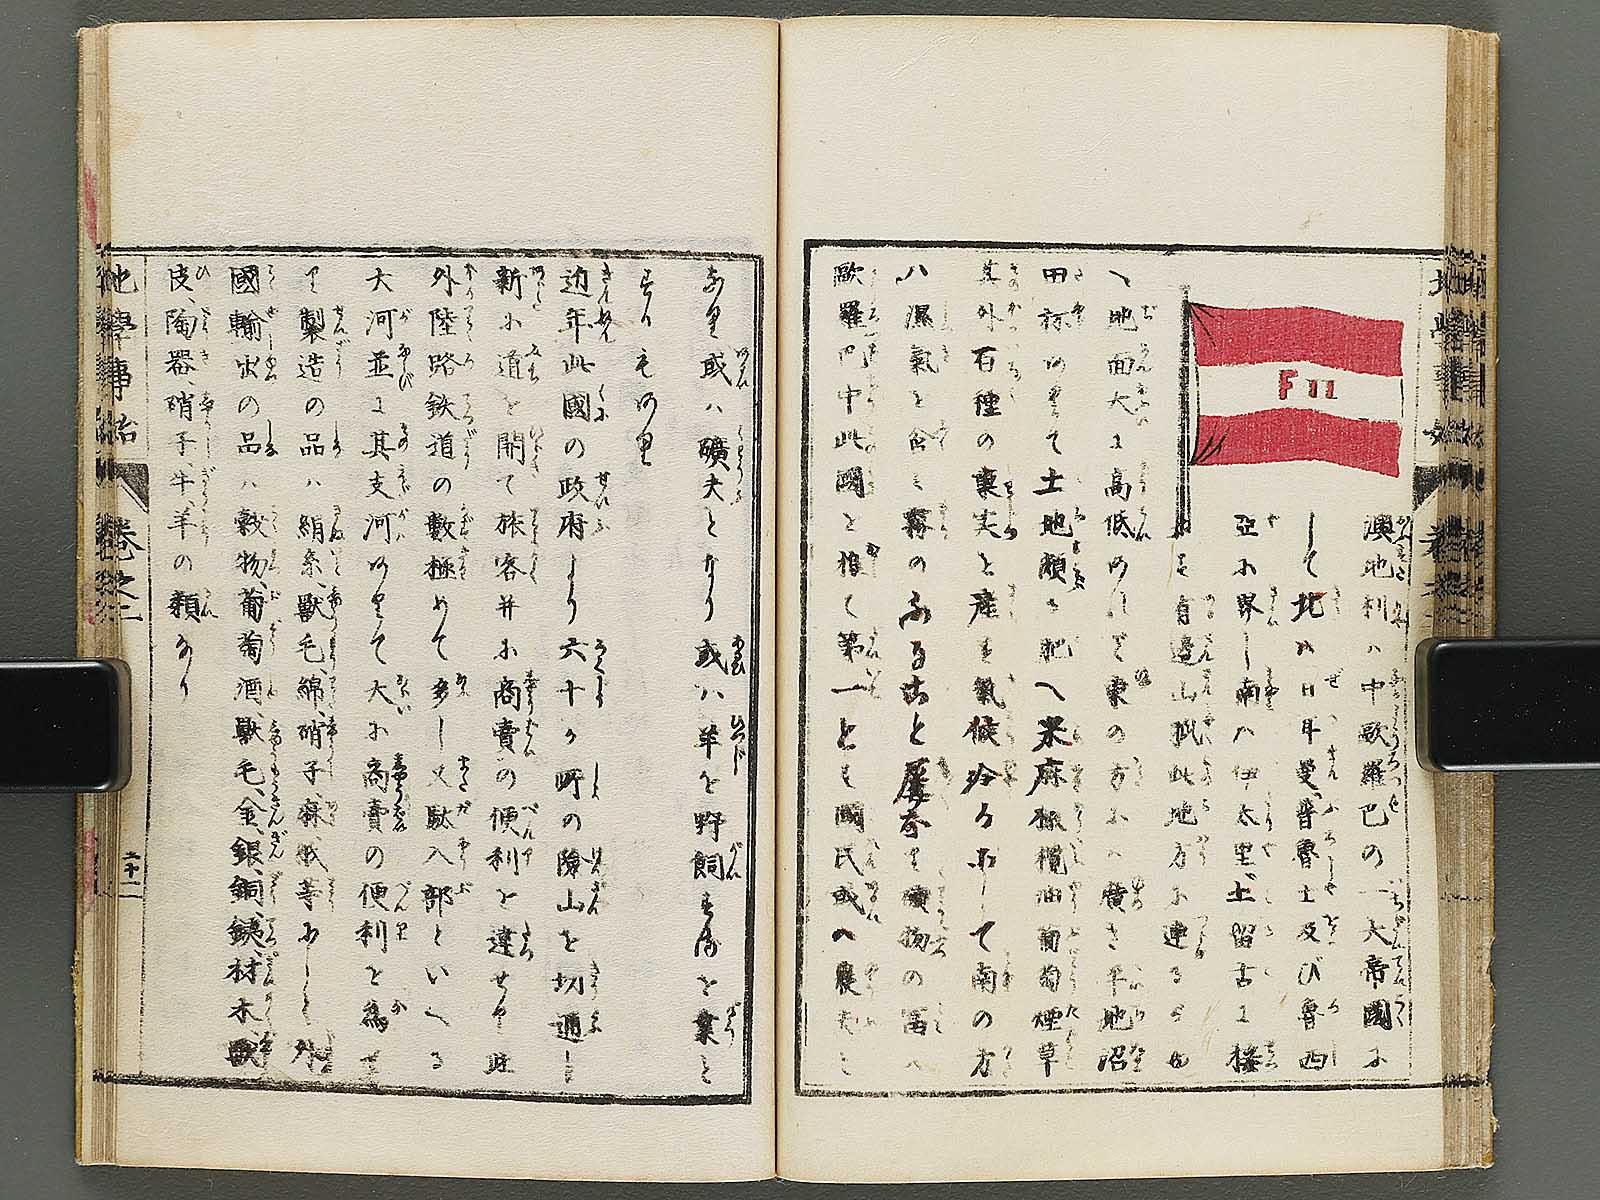 F II
澳地利ハ中歐羅巴の一大帝國ふ
して北ハ日耳曼、普魯士及び魯西
亞ふ界し南ハ伊太里、土留古に接
有邊山抵此地方ふ連る
地面大に高低あれど東の方ふハ廣き平地沼
田拆ありて土地頗る肥へ米麻橄欖油葡萄煙草
其外百種の菓実を産す氣候冷るふして南の方
ハ濕氣を含み霧のふること屡々なり礦物の富ハ
歐羅巴中此國を推て第一とす國民或ハ農夫と
なり或ハ礦夫となり或ハ羊を野飼する を業と
するもあり
近年此國の政府より六十ヶ町の險山を切通し
新ふ道を開て旅客并ふ商賣の便利を達せり 此
外陸路鉄道の數極めて多し又駄入部といへる
大河並に其支河ありて大ふ商賣の便利を為す
製造の品ハ絹糸、獸毛、綿、硝子、麻、紙等ふして外
國輸出の品ハ穀物、葡萄酒、獸毛、金、銀、銅、銕、材木、獸
皮、陶器、硝子、牛、羊の類なり
地學事始
卷之二
二十一